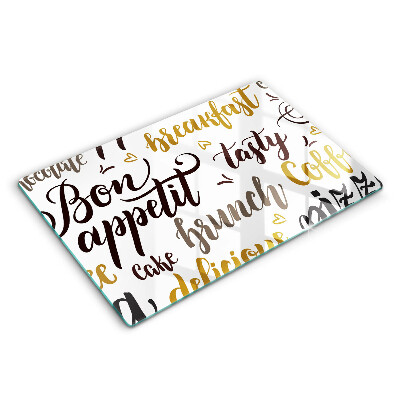 breakfast
tasty
Coff
Bon
appetit
brunch
cake
delicious